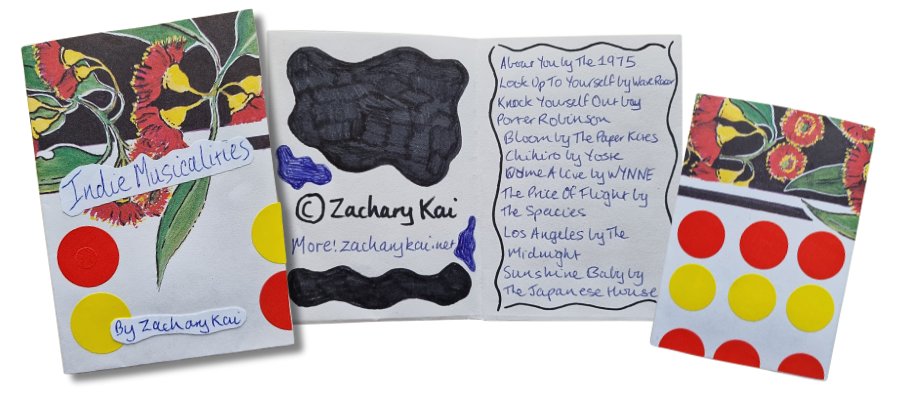 Indie Musicalities
By Zachary Kai
© Zachary Kai
More! zacharykai.net
About You by The 1975
Look Up To Yourself by Wave Racer
Knock Yourself Out by
Porter Robinson
Bloom by The Paper Kites
Chihiro by Yosie
Come Alive by WYNNE
The Price Of Flight by
The Spacies
Los Angeles by The
Midnight
Sunshine Baby by
The Japanese House